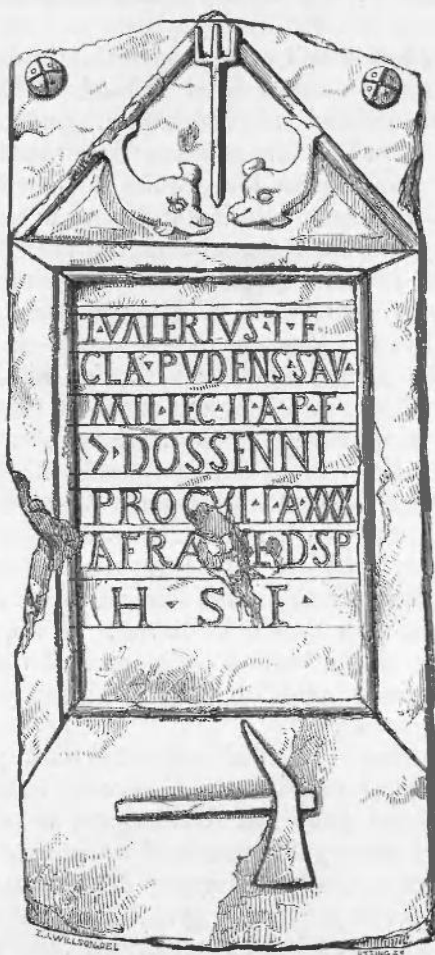 T·VALERIVS·T·F
CLA·PVDENS·SAV·
MIL·LEG·II·A·P·F·
>·DOSSENNI
PROCVLI·A·XXX
AERA D·SP
H·S·E·
E.J.WILLSON.DEL
UTTING.SC